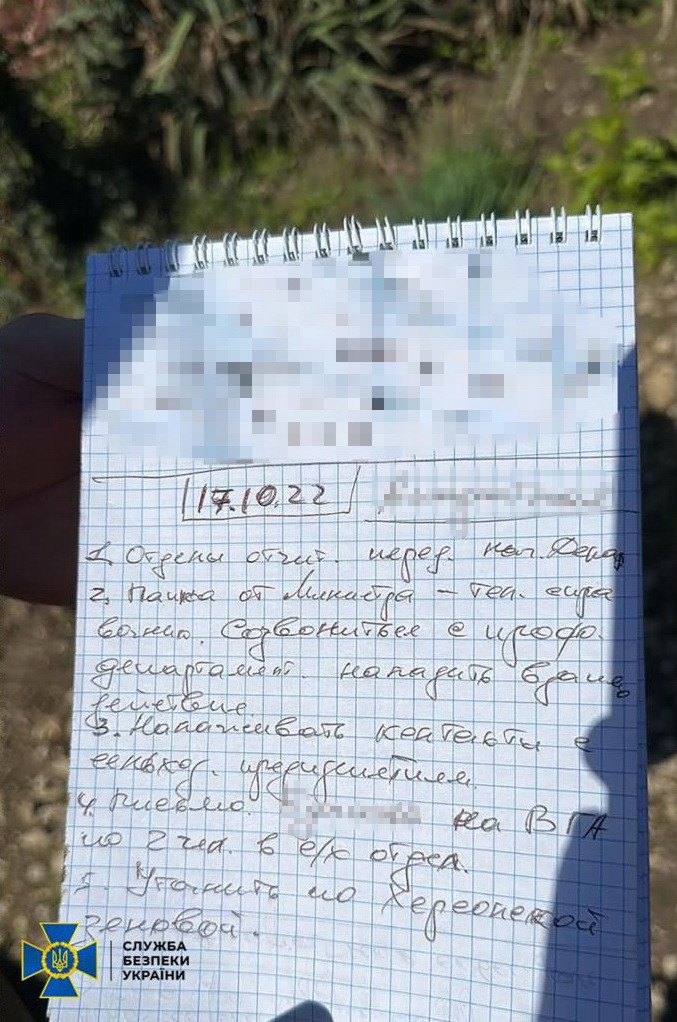 17.10.22
1. Отделы отчит. перед. нач. Депар
2. Папка от Министра – тел. спра
вочник. Созвониться с проф.
департамент. наладить взаимо
действие.
3. Налаживать контакты с
сельхоз. предприятием
4. Письмо. на ВГА
по 2 чел. в с/х отдел.
5. Уточнить по Херсонской
зерновой.
СЛУЖБА
БЕЗПЕКИ
УКРАЇНИ